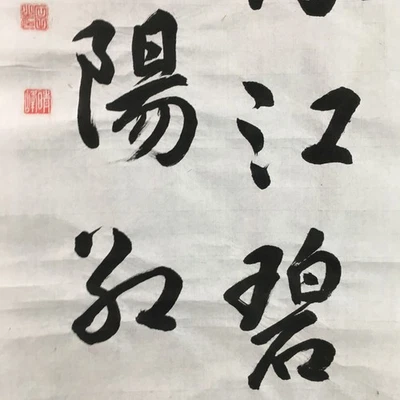 江碧
陽紅